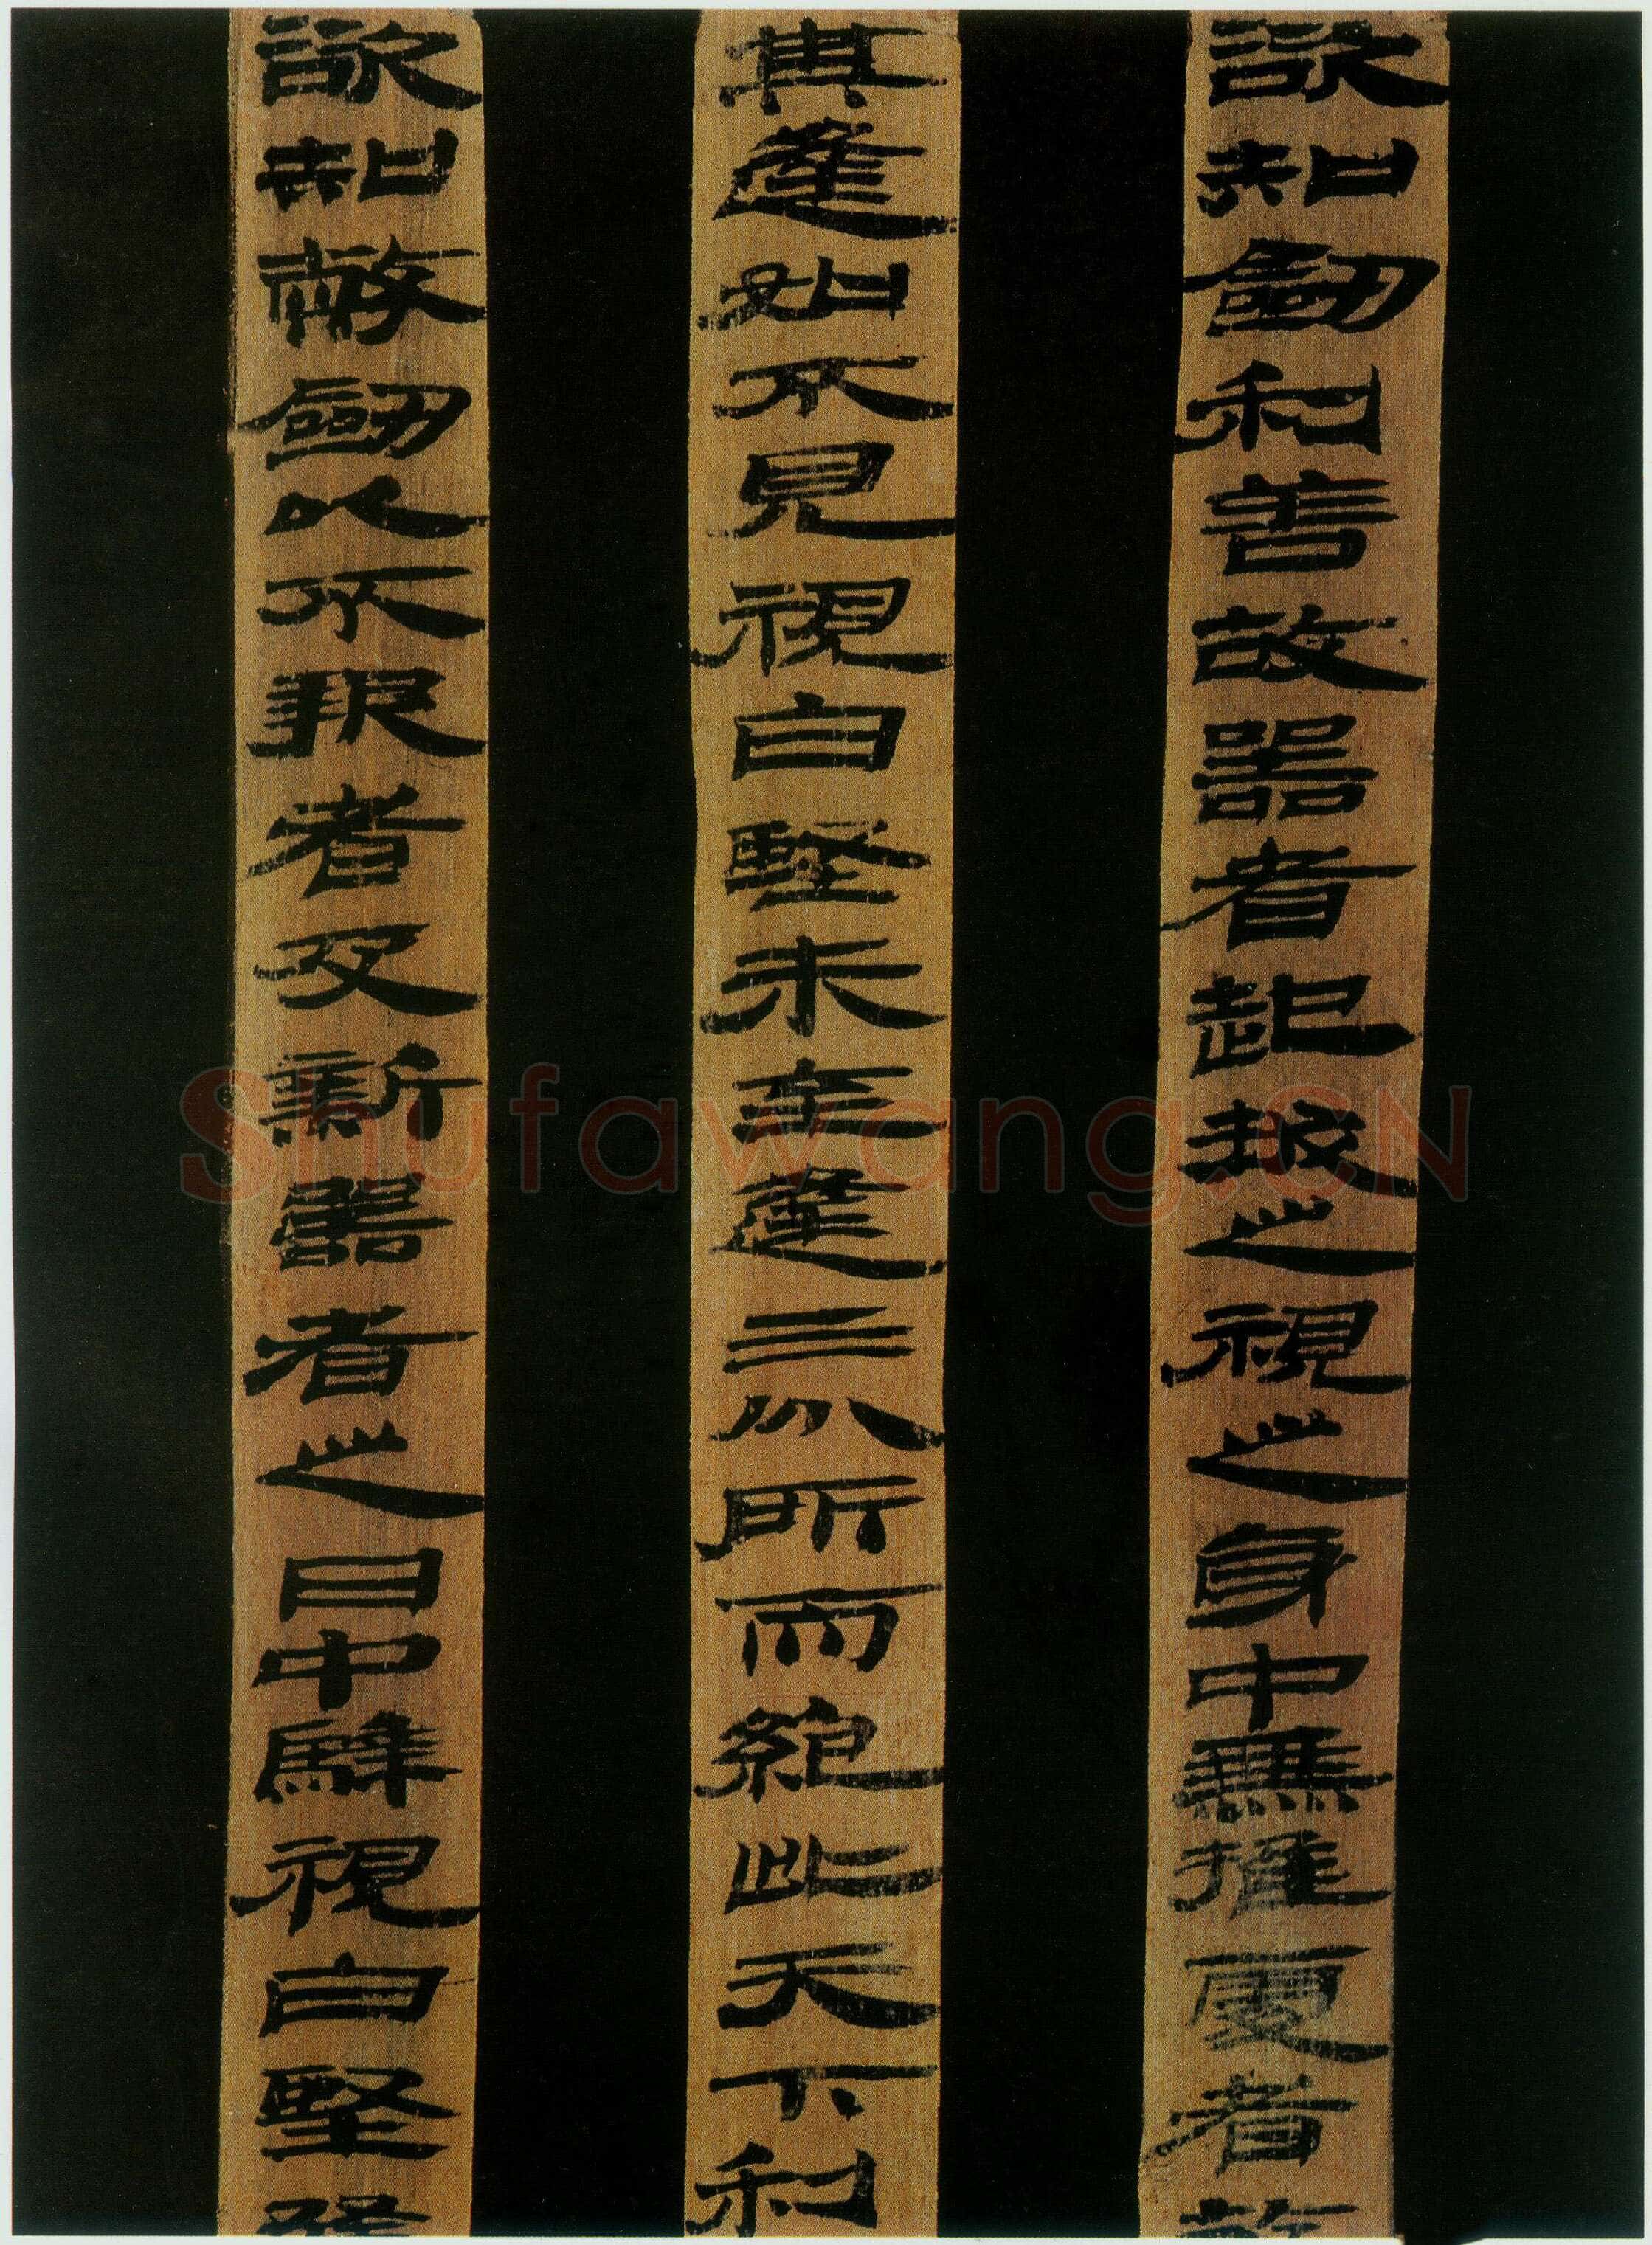 欲知劒利善故器者起拔之視之身中無推處者故
其逢如不見視白堅未至逢三分所而絕此天下利
欲知幣劒以不報者及新器者之日中騂視白堅
Shufawang.CN